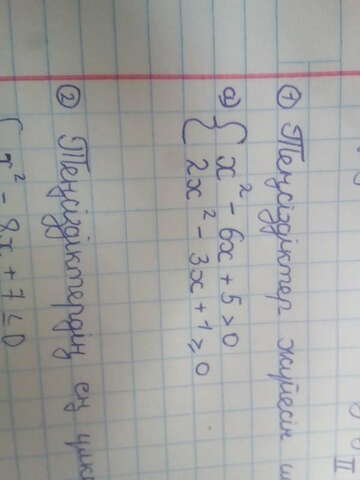 ① Теңсіздіктер жүйесін ш
а) { x² - 6x + 5 > 0
2x² - 3x + 1 ≥ 0
② Теңсіздіктердің ең
x² - 8x + 7 ≤ 0